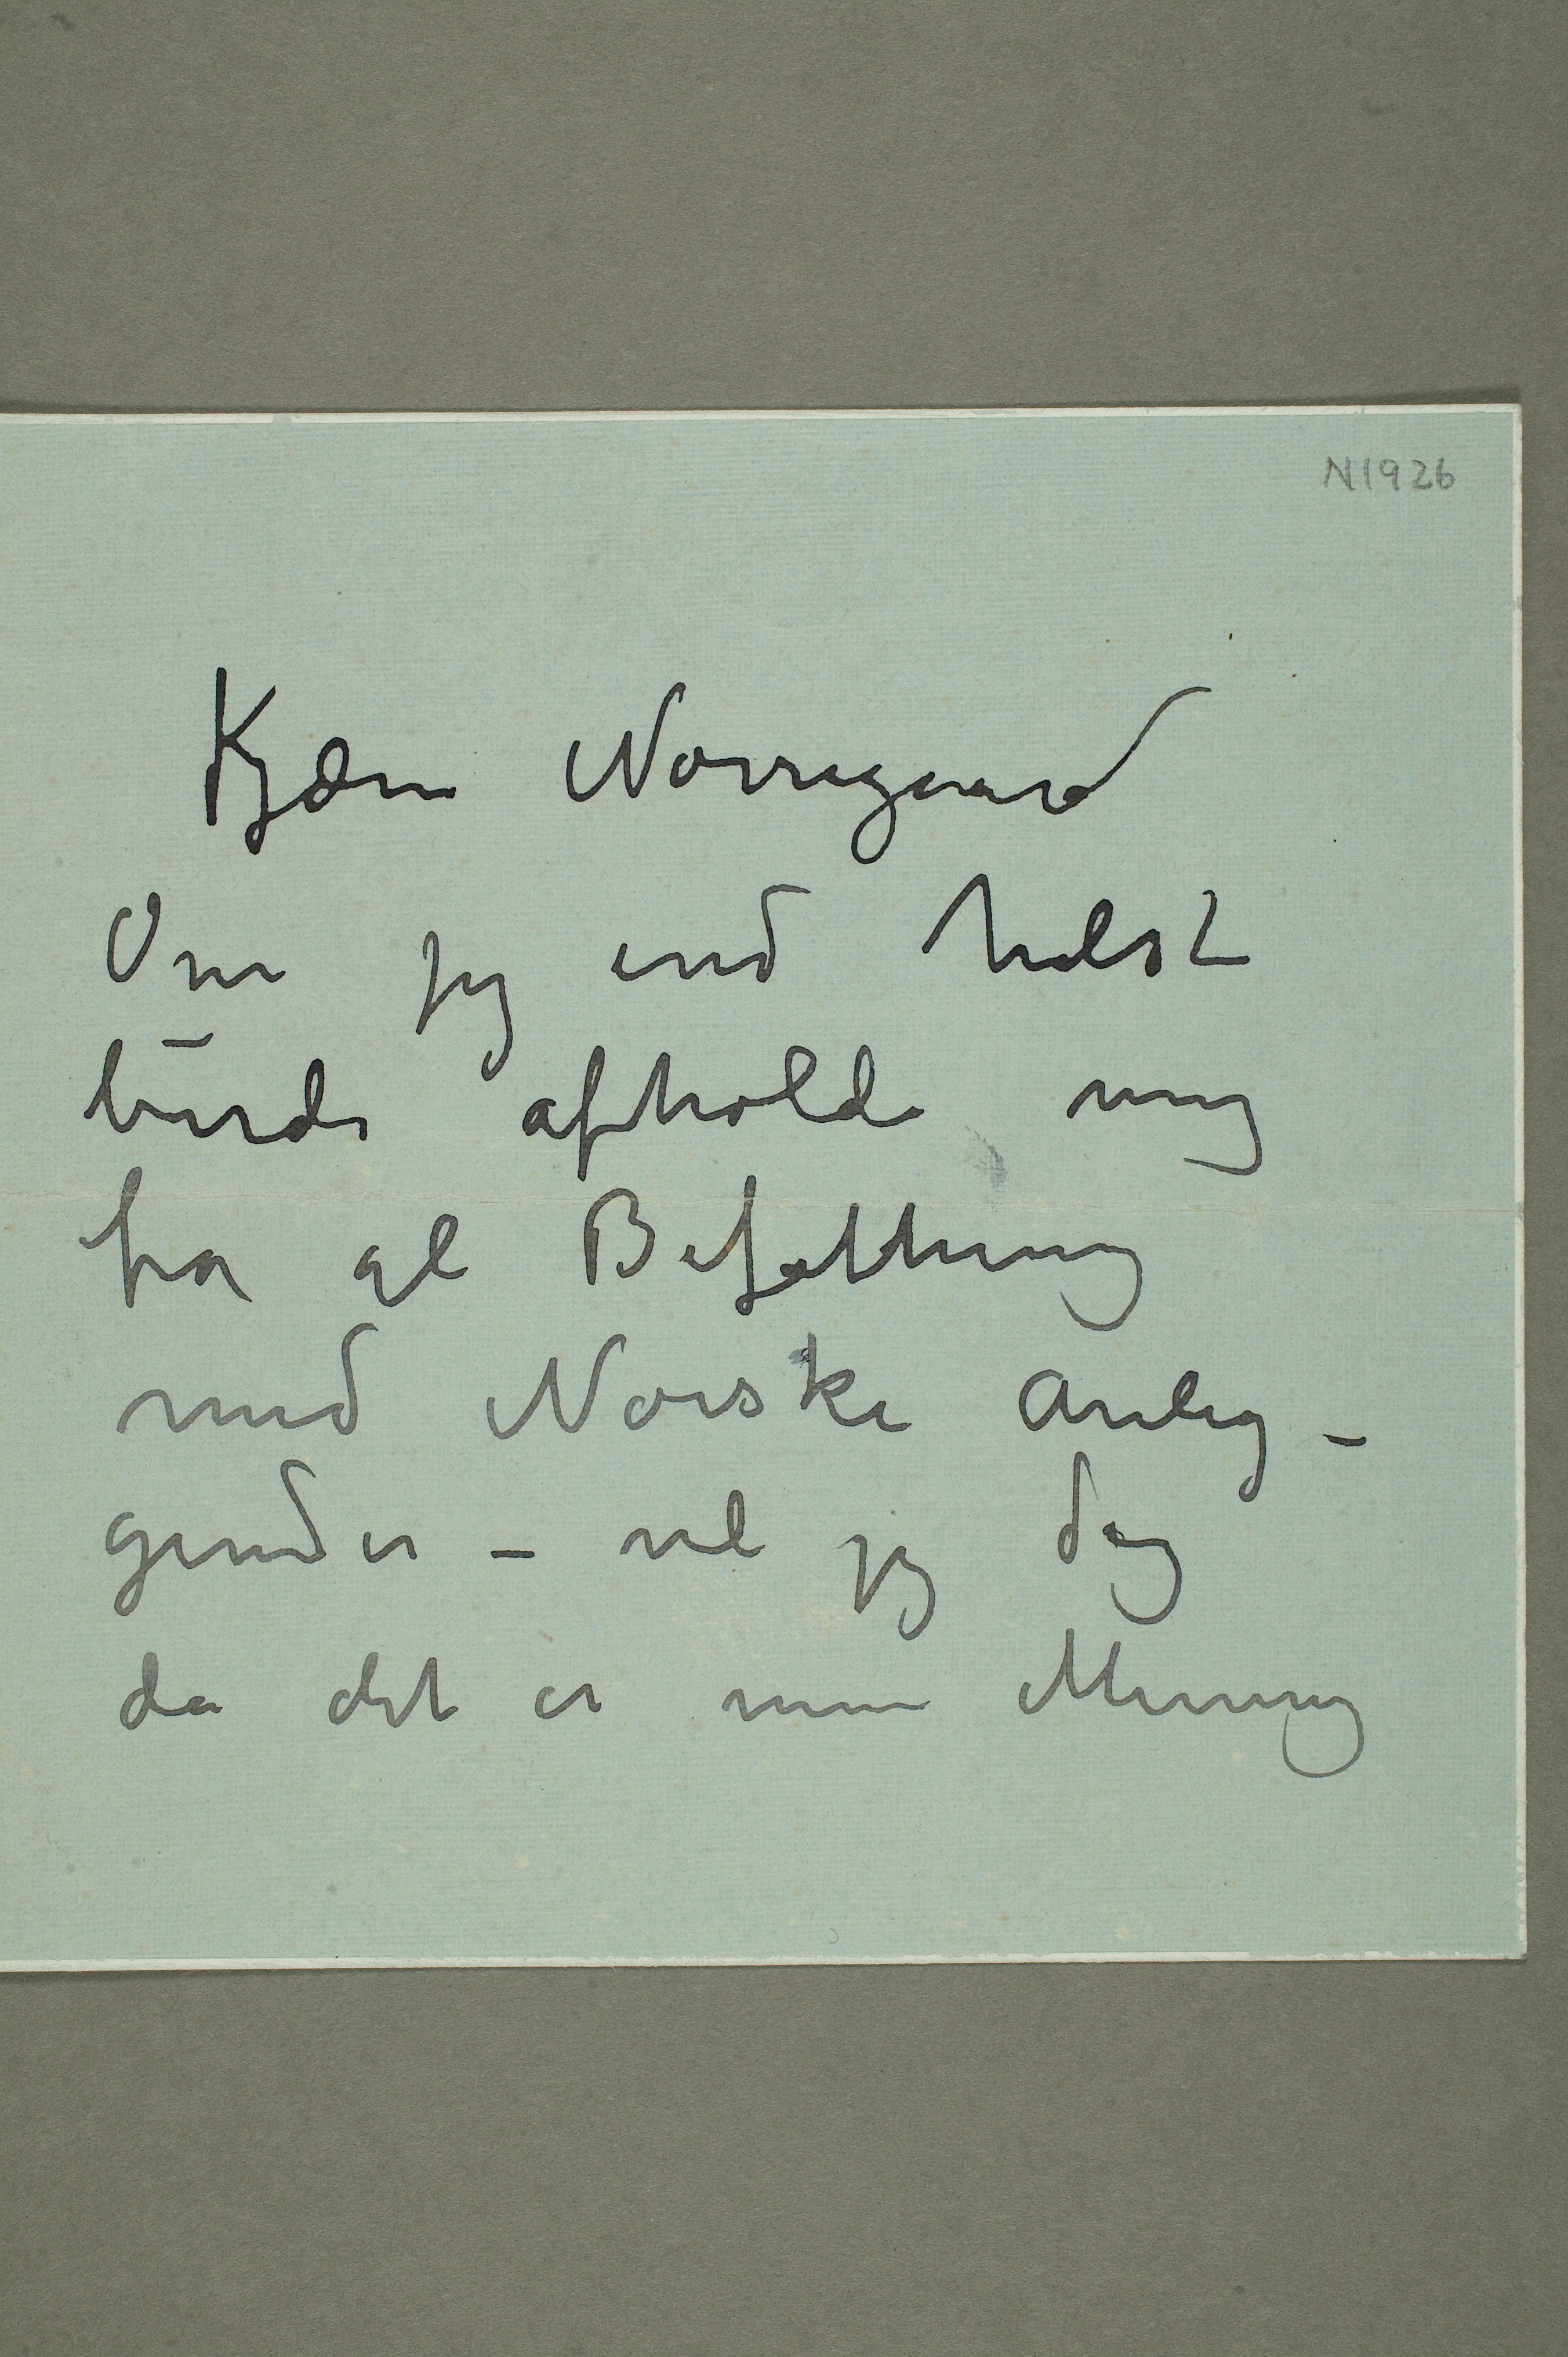 N1926
Kjære Nørregaard
Om jeg end helst
burde afholde mig
fra al Befatning
med Norske anlig-
gender – vil jeg dog
da det er min Mening